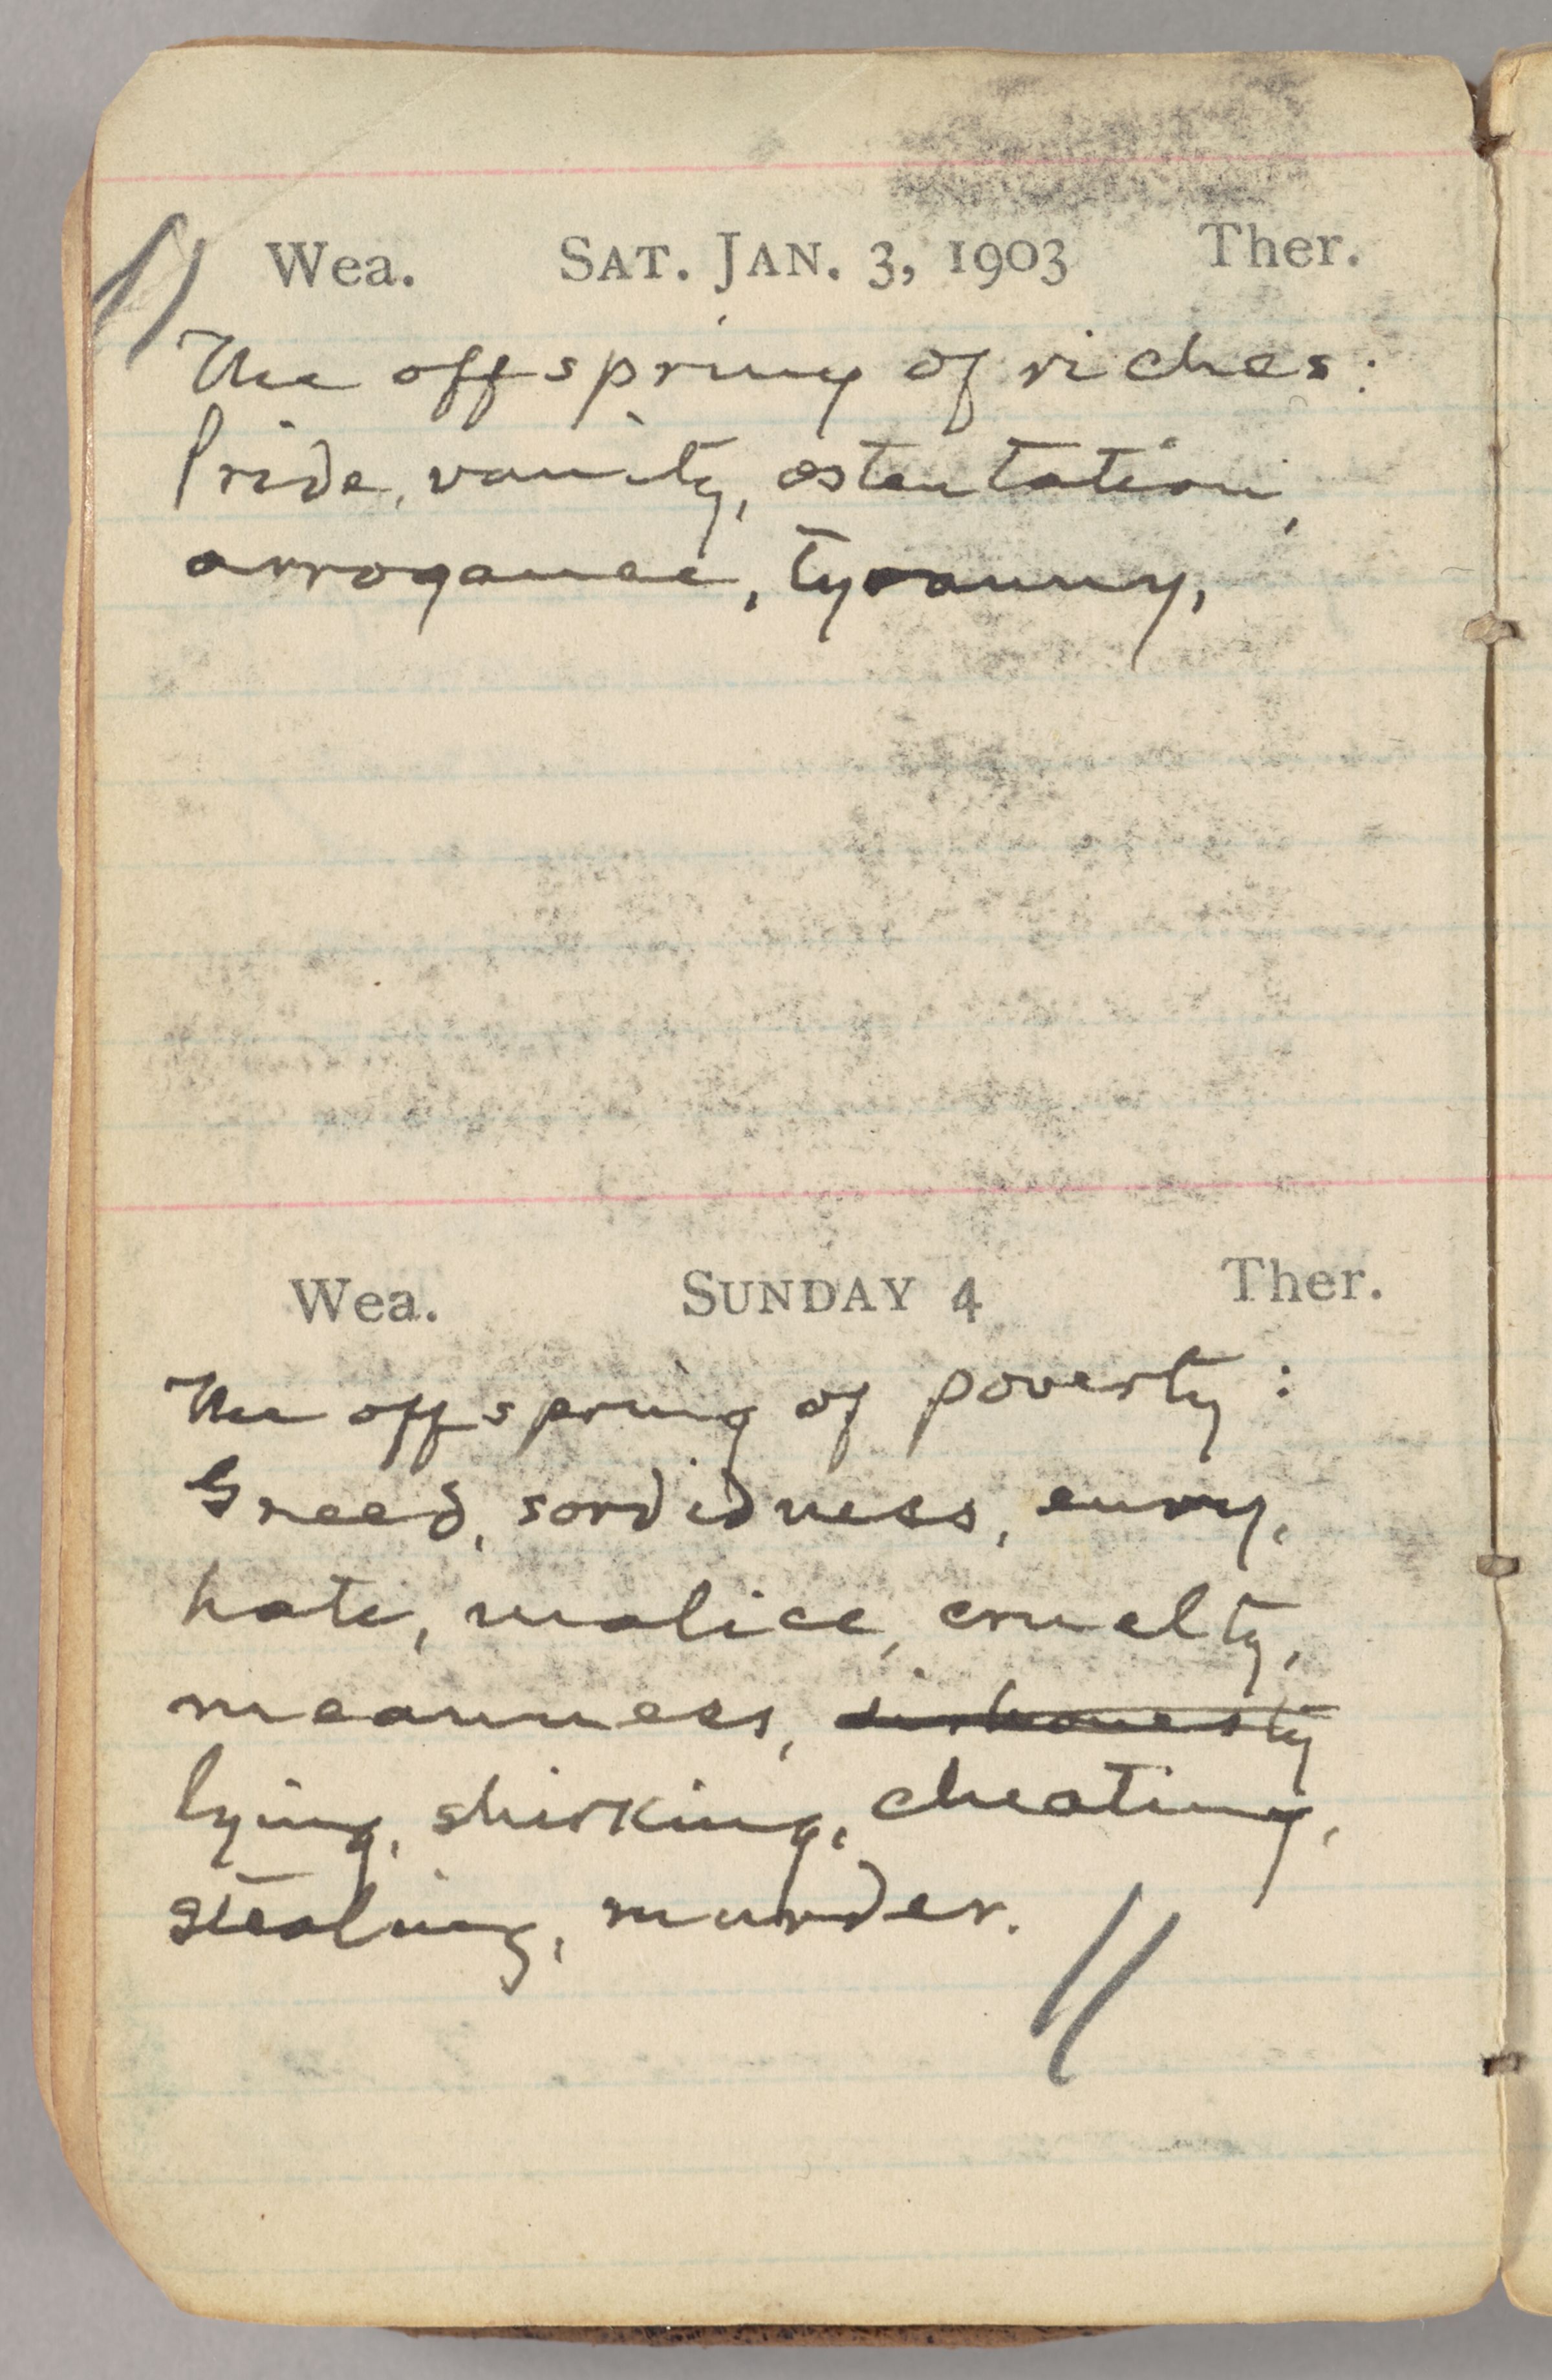 Wea. SAT. JAN. 3, 1903 Ther.
The offspring of riches:
Pride, vanity, ostentation,
arrogance, tyranny,
Wea. SUNDAY 4 Ther.
The offspring of poverty:
Greed, sordidness, envy,
hate, malice, cruelty,
meanness, dishonesty
lying, shirking, cheating,
stealing, murder.